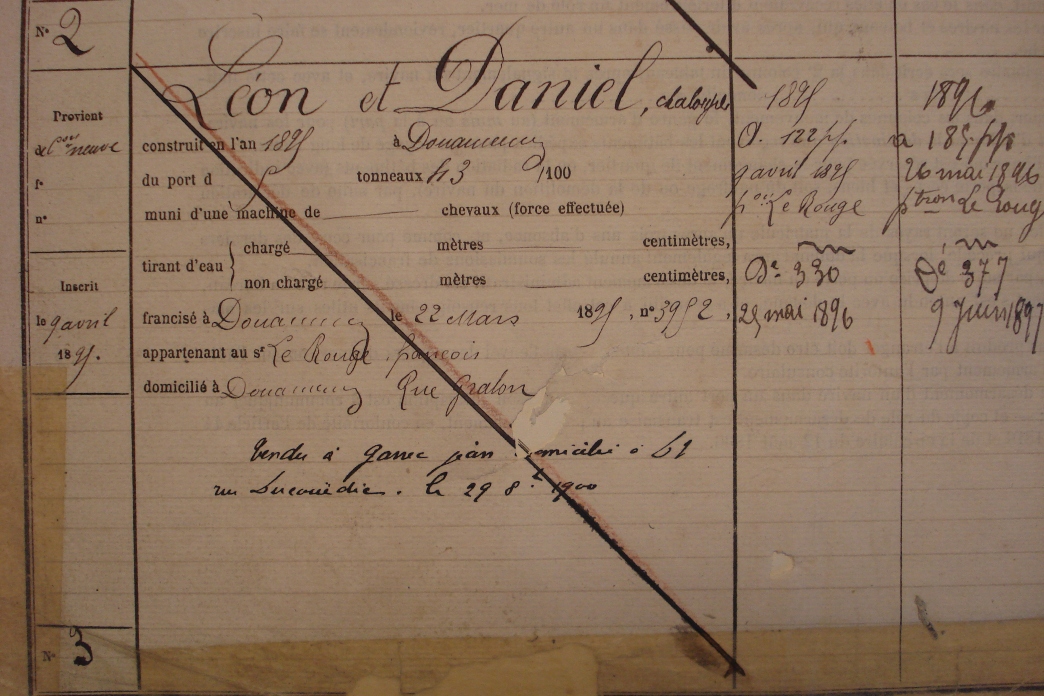 N° 2
Provient
de Con neuve
f°
n°
Inscrit
le 9 avril
1895.
Léon et Daniel, chaloupe
construit en l'an 1895 à Douarnenez
du port d 5 tonneaux 43 /100
muni d'une machine de chevaux (force effectuée)
tirant d'eau
chargé mètres centimètres,
non chargé mètres centimètres,
francisé à Douarnenez le 22 Mars 1895, n° 3952,
appartenant au sr Le Rouge françois
domicilié à Douarnenez Rue Gralon
Vendu à Garrec jean domicilié à
rue Ducouëdic. le 29 8bre 1900
1895
a. 122 pp.
9 avril 1895
pon Le Rouge
Dé 330
25 mai 1896
1896
a 185 pp
26 mai 1896
ptron Le Roug
Dé 377
9 Juin 1897
N° 3